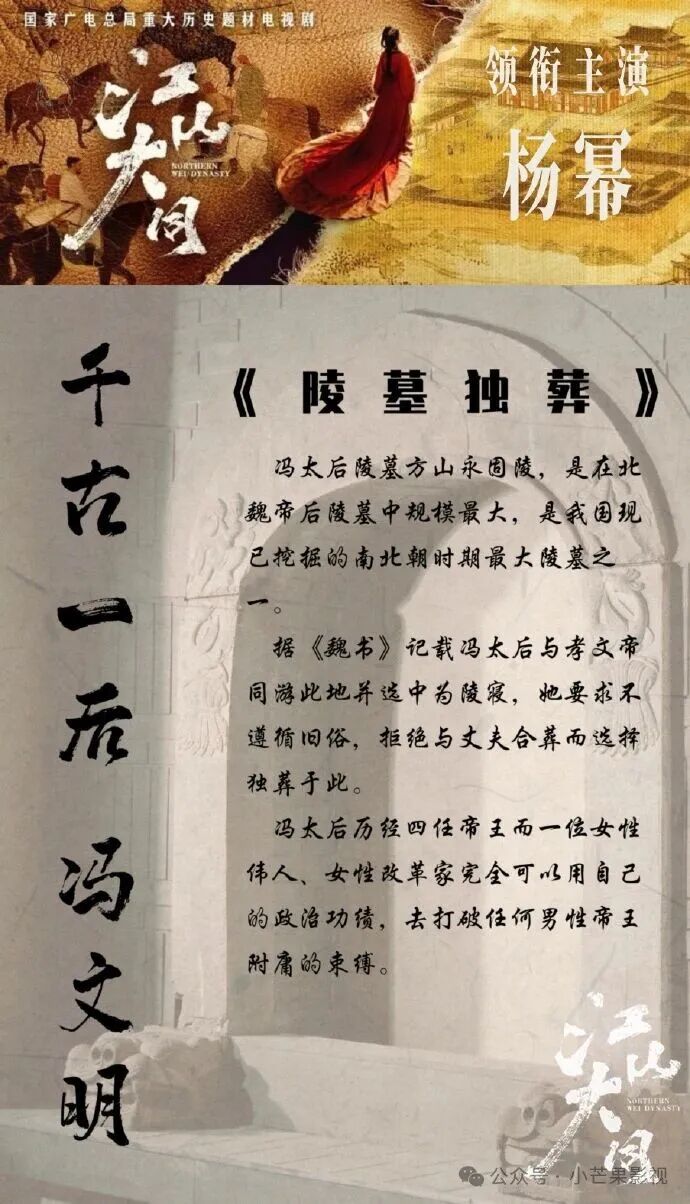 国家广电总局重大历史题材电视剧
江山大同
NORTHERN
WEI DYNASTY
领衔主演
杨幂
千古一后冯文明
《陵墓独葬》
冯太后陵墓方山永固陵，是在北
魏帝后陵墓中规模最大，是我国现
已挖掘的南北朝时期最大陵墓之
一。
据《魏书》记载冯太后与孝文帝
同游此地并选中为陵寝，她要求不
遵循旧俗，拒绝与丈夫合葬而选择
独葬于此。
冯太后历经四任帝王而一位女性
伟人、女性改革家完全可以用自己
的政治功绩，去打破任何男性帝王
附庸的束缚。
江山大同
NORTHERN
WEI DYNASTY
公众号·小芒果影视